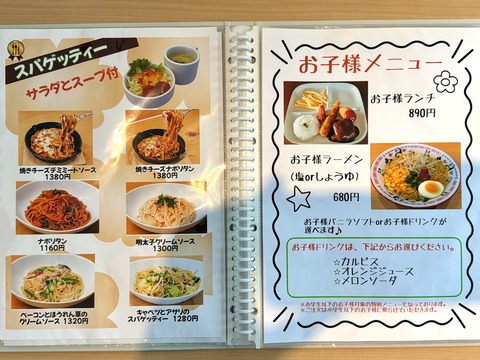 スパゲッティー
サラダとスープ付
焼きチーズデミミートソース
1380円
焼きチーズナポリタン
1380円
ナポリタン
1160円
明太子クリームソース
1300円
ベーコンとほうれん草の
クリームソース 1320円
キャベツとアサリの
スパゲッティー 1280円
お子様メニュー
お子様ランチ
890円
お子様ラーメン
(塩orしょうゆ)
680円
お子様バニラソフトorお子様ドリンクが
選べます♪
お子様ドリンクは、下記からお選びください。
☆カルピス
☆オレンジジュース
☆メロンソーダ
※小学生以下のお子様対象の特別メニューとなっております。
※ご注文は小学生以下のお子様に限らせていただきます。